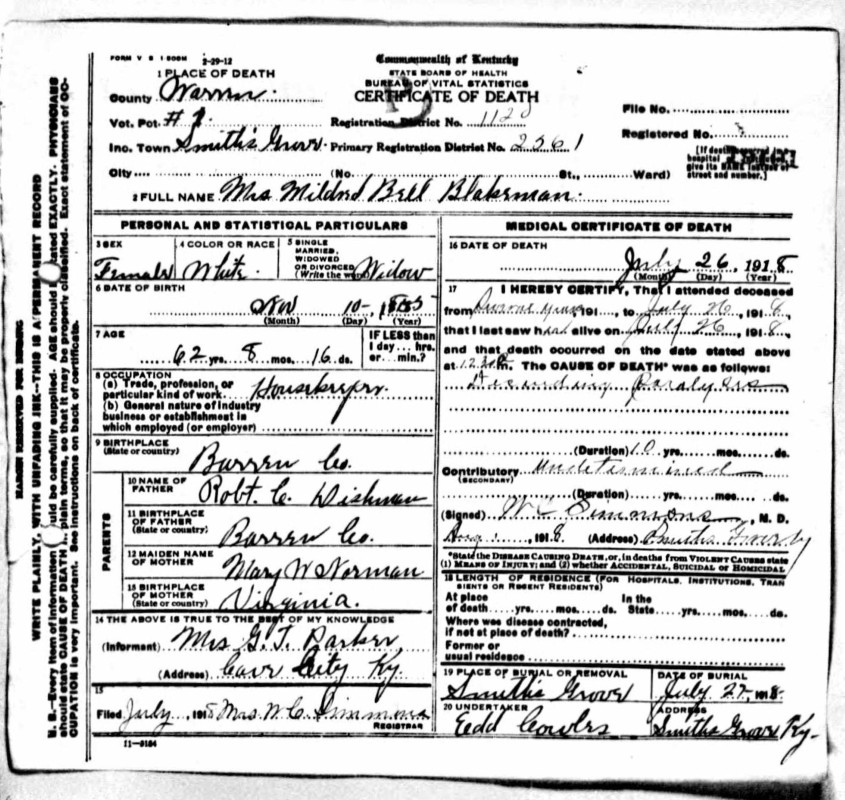 FORM V S 1 500M 2-29-12
Commonwealth of Kentucky
STATE BOARD OF HEALTH
BUREAU OF VITAL STATISTICS
CERTIFICATE OF DEATH
1 PLACE OF DEATH
County Warren
Vot. Pct #1 Registration District No. 1120
Inc. Town Smiths Grove Primary Registration District No. 2561
City (No. St., Ward)
File No.
Registered No.
[If death occurred in a
hospital
give its NAME instead of
street and number.]
2 FULL NAME Mrs Mildred Bell Blakeman
PERSONAL AND STATISTICAL PARTICULARS
3 SEX Female
4 COLOR OR RACE White
5 SINGLE
MARRIED,
WIDOWED
OR DIVORCED
(Write the word) Widow
6 DATE OF BIRTH
Nov 10
(Month) (Day) (Year)
7 AGE
62 yrs. 8 mos. 16 ds.
IF LESS than
1 day hrs.
or min.?
8 OCCUPATION
(a) Trade, profession, or
particular kind of work Housekeeper
(b) General nature of industry
business or establishment in
which employed (or employer)
9 BIRTHPLACE
(State or country) Barren Co.
PARENTS
10 NAME OF
FATHER Robt. C. Dishman
11 BIRTHPLACE
OF FATHER
(State or country) Barren Co.
12 MAIDEN NAME
OF MOTHER Mary W Norman
13 BIRTHPLACE
OF MOTHER
(State or country) Virginia.
14 THE ABOVE IS TRUE TO THE BEST OF MY KNOWLEDGE
(Informant) Mrs G. T. Parker
(Address) Cave City Ky.
15
Filed July, 1918 Mrs. W. C. Simmons
REGISTRAR
11-3184
MEDICAL CERTIFICATE OF DEATH
16 DATE OF DEATH
July 26, 1918
(Month) (Day) (Year)
17 I HEREBY CERTIFY, That I attended deceased
from 191, to July 26, 1918,
that I last saw her alive on July 26, 1918,
and that death occurred on the date stated above
at m. The CAUSE OF DEATH* was as follows:
Ascending Paralysis
(Duration) 10 yrs. mos. ds.
Contributory Undetermined
(SECONDARY)
(Duration) yrs. mos. ds.
(Signed) W C Simmons, M. D.
Aug 1, 1918 (Address) Smiths Grove Ky
*State the DISEASE CAUSING DEATH, or, in deaths from VIOLENT CAUSES state
(1) MEANS OF INJURY; and (2) whether ACCIDENTAL, SUICIDAL or HOMICIDAL
18 LENGTH OF RESIDENCE (FOR HOSPITALS, INSTITUTIONS, TRAN
SIENTS OR RECENT RESIDENTS)
At place In the
of death yrs. mos. ds. State yrs. mos. ds.
Where was disease contracted,
if not at place of death?
Former or
usual residence
19 PLACE OF BURIAL OR REMOVAL
Smiths Grove
DATE OF BURIAL
July 27, 1918
20 UNDERTAKER
Edd Cowles
ADDRESS
Smiths Grove Ky.
MARGIN RESERVED FOR BINDING
WRITE PLAINLY, WITH UNFADING INK--THIS IS A PERMANENT RECORD
N. B.--Every item of information should be carefully supplied. AGE should be stated EXACTLY. PHYSICIANS
should state CAUSE OF DEATH in plain terms, so that it may be properly classified. Exact statement of OC-
CUPATION is very important. See instructions on back of certificate.